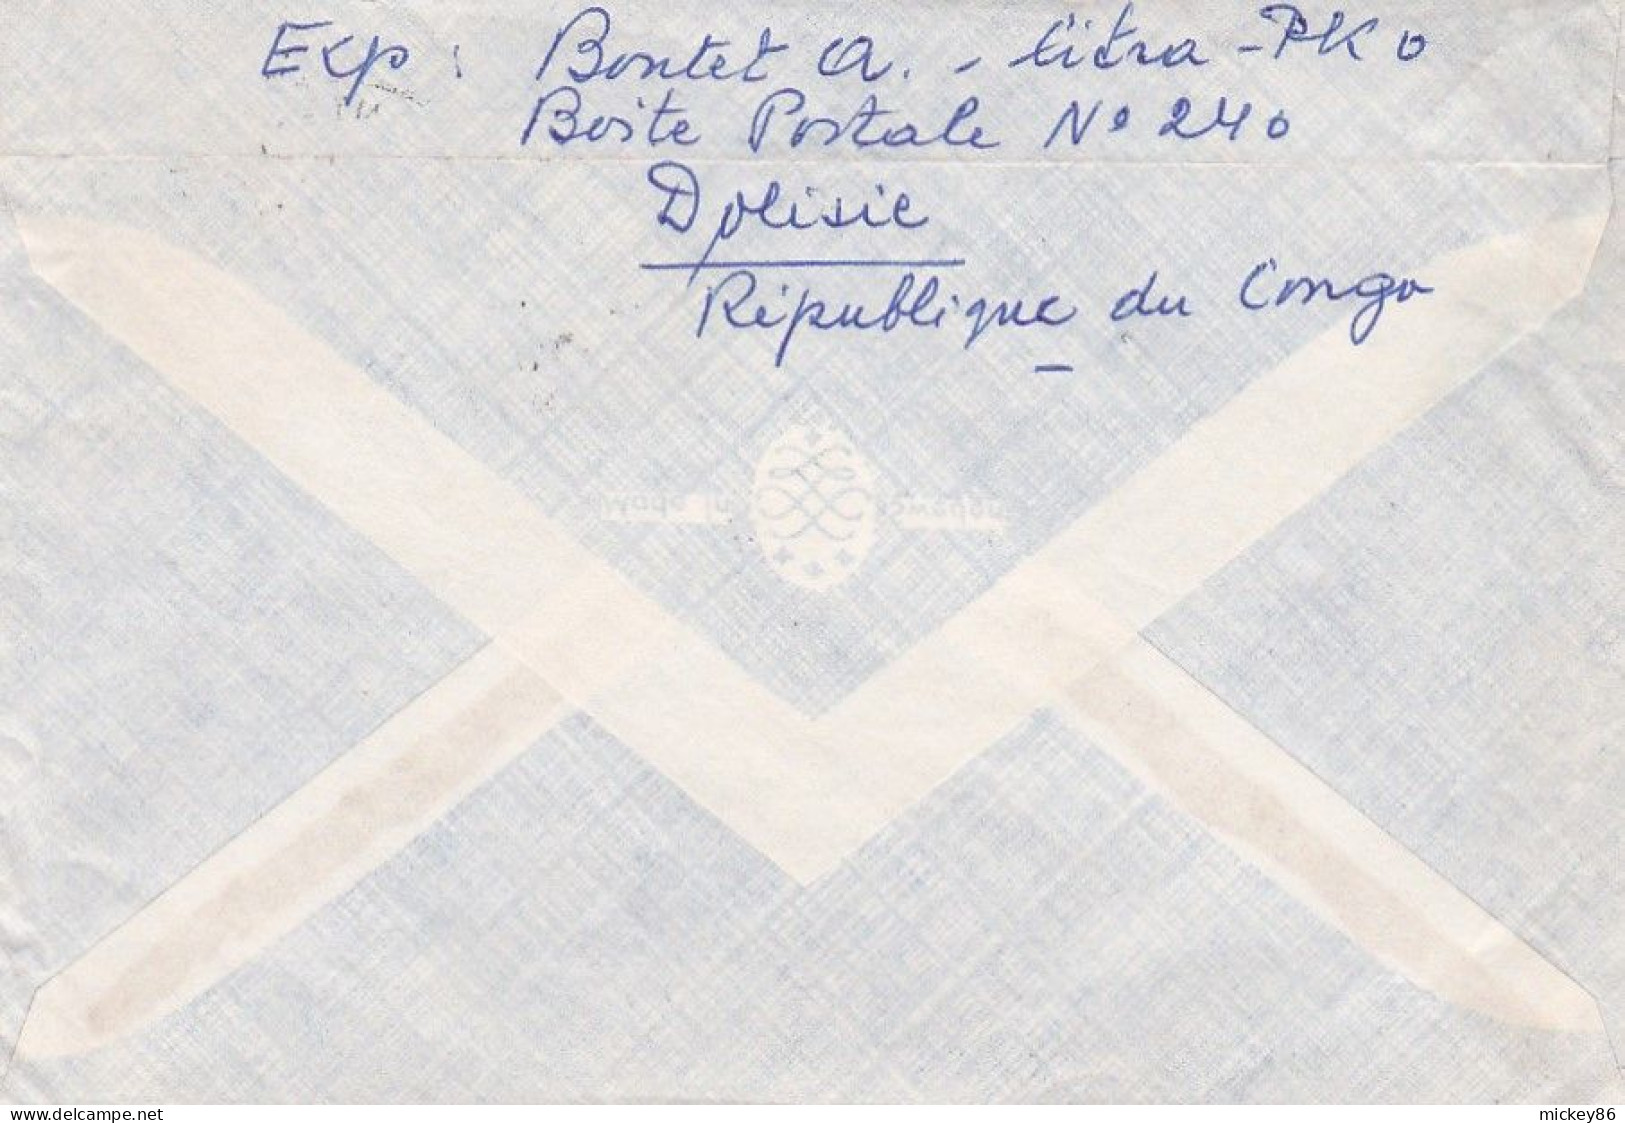 Exp : Bontet A. - Citra - PK 0
Boite Postale N° 240
Dolisie
République du Congo
www.delcampe.net
mickey86